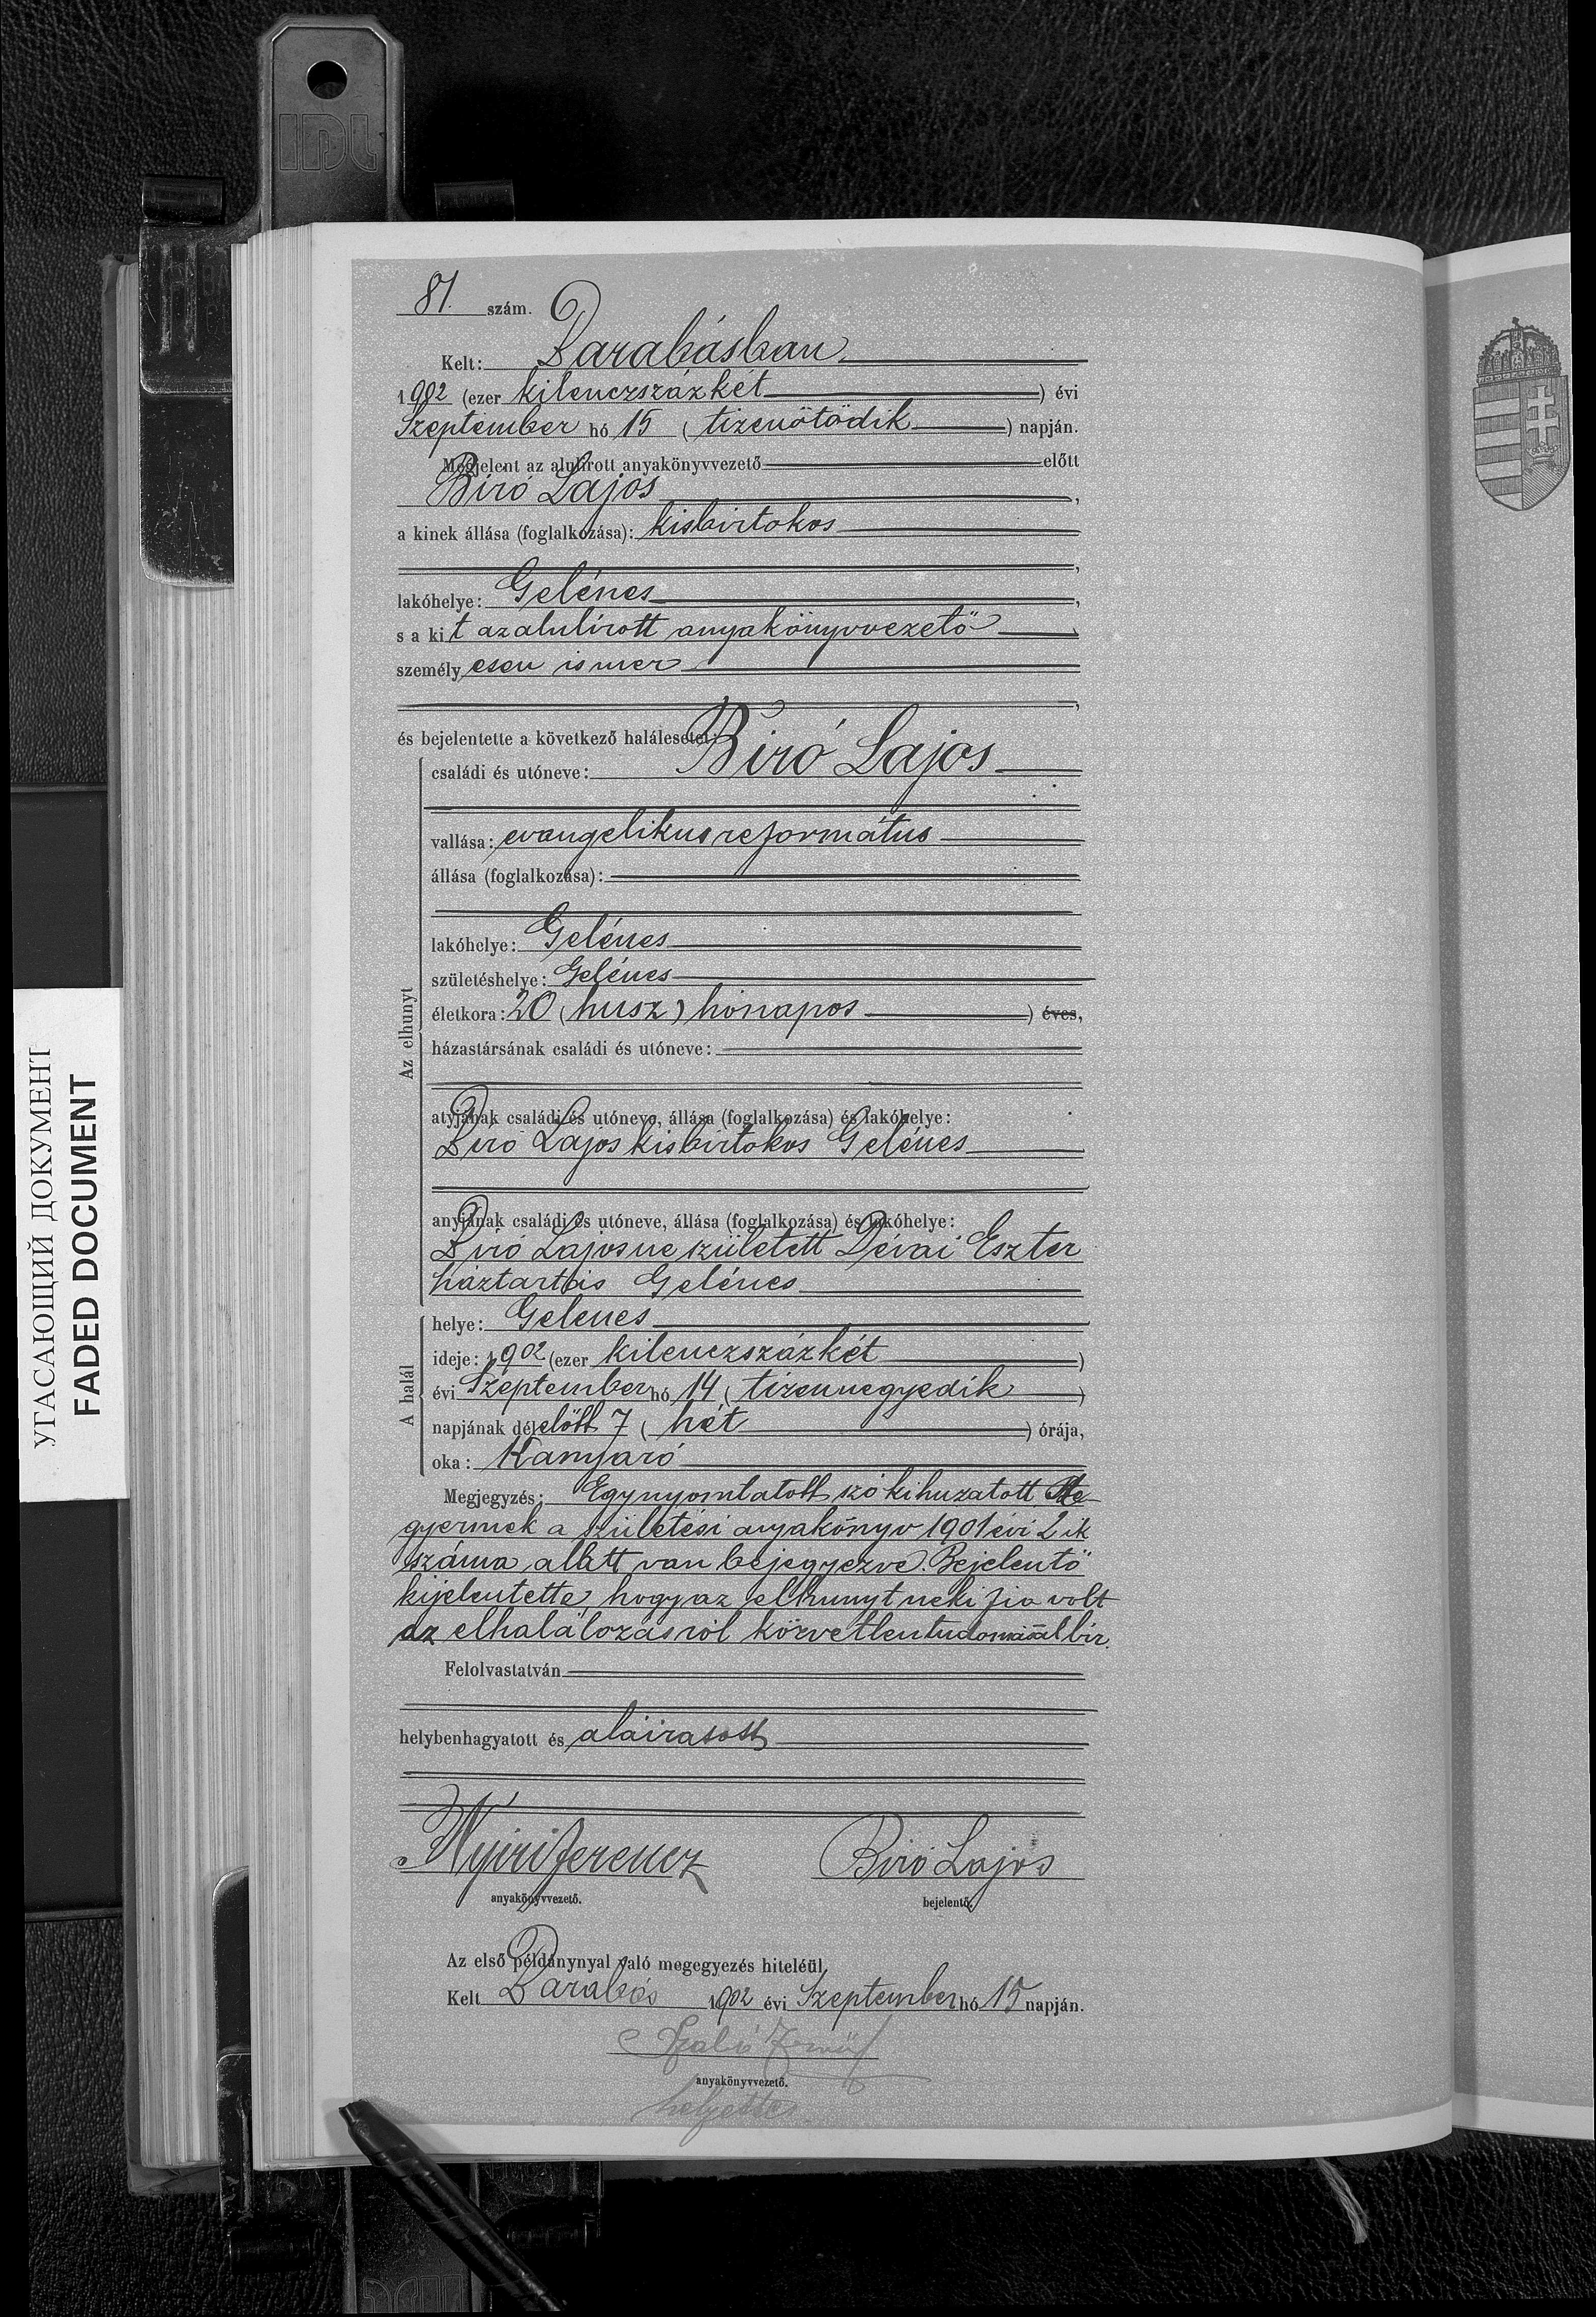 IDL
81. szám.
Kelt: Barabásban
1902 (ezer kilenczszázkét) évi
Szeptember hó 15 (tizenötödik) napján.
Megjelent az alulírott anyakönyvvezető előtt
Biró Lajos,
a kinek állása (foglalkozása): kisbirtokos
,
lakóhelye: Gelénes,
s a kit az alulirott anyakönyvvezető
személyesen ismer
,
és bejelentette a következő halálesetet:
családi és utóneve: Biró Lajos
vallása: evangelikus református
állása (foglalkozása):
lakóhelye: Gelénes
születéshelye: Gelénes
életkora: 20 (husz) hónapos) éves,
házastársának családi és utóneve:
atyjának családi és utóneve, állása (foglalkozása) és lakóhelye:
Biró Lajos kisbirtokos Gelénes
anyjának családi és utóneve, állása (foglalkozása) és lakóhelye:
Biró Lajosne született Dévai Eszter
háztartás Gelénes
Az elhunyt
helye: Gelenes
ideje: 1902 (ezer kilenczszázkét)
évi Szeptember hó 14 (tizennegyedik)
napjának délelőtt 7 (hét) órája,
oka: Kanyaró
A halál
Megjegyzés: Egy nyomtatott szó kihuzatott. A
gyermek a születési anyakönyv 1901 évi 2 ik
száma alatt van bejegyezve. Bejelentő
kijelentette, hogy az elhunyt neki fia volt
az elhalálozásról közvetlen tudomással bir.
Felolvastatván
helybenhagyatott és aláiratott
Nyiri Ferencz
anyakönyvvezető.
Biró Lajos
bejelentő.
Az első példánynyal való megegyezés hiteléül.
Kelt Barabás 1902 évi Szeptember hó 15 napján.
Szabó
anyakönyvvezető.
helyettes
УГАСАЮЩИЙ ДОКУМЕНТ
FADED DOCUMENT